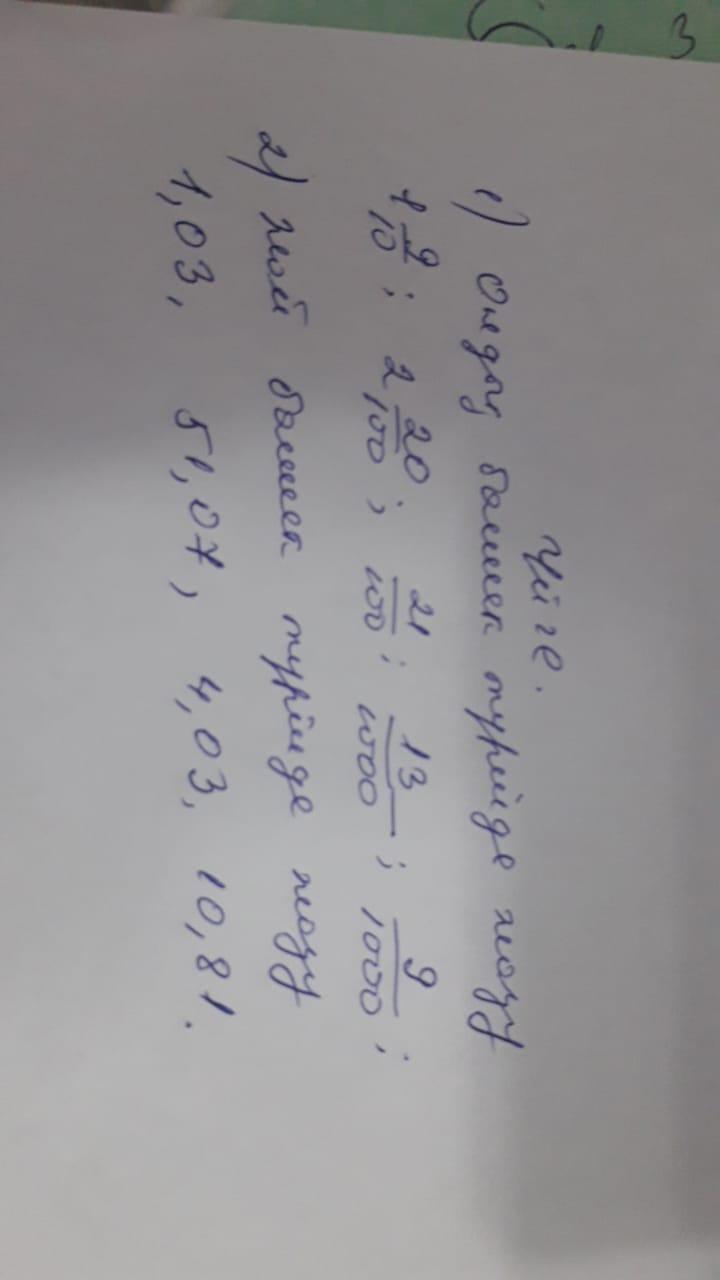 Үйге.
1) Ондық бөлшек түрінде жазу
7 9/10; 2 20/100; 21/100; 13/1000; 9/1000;
2) жай бөлшек түрінде жазу
1,03, 51,07, 4,03, 10,81.